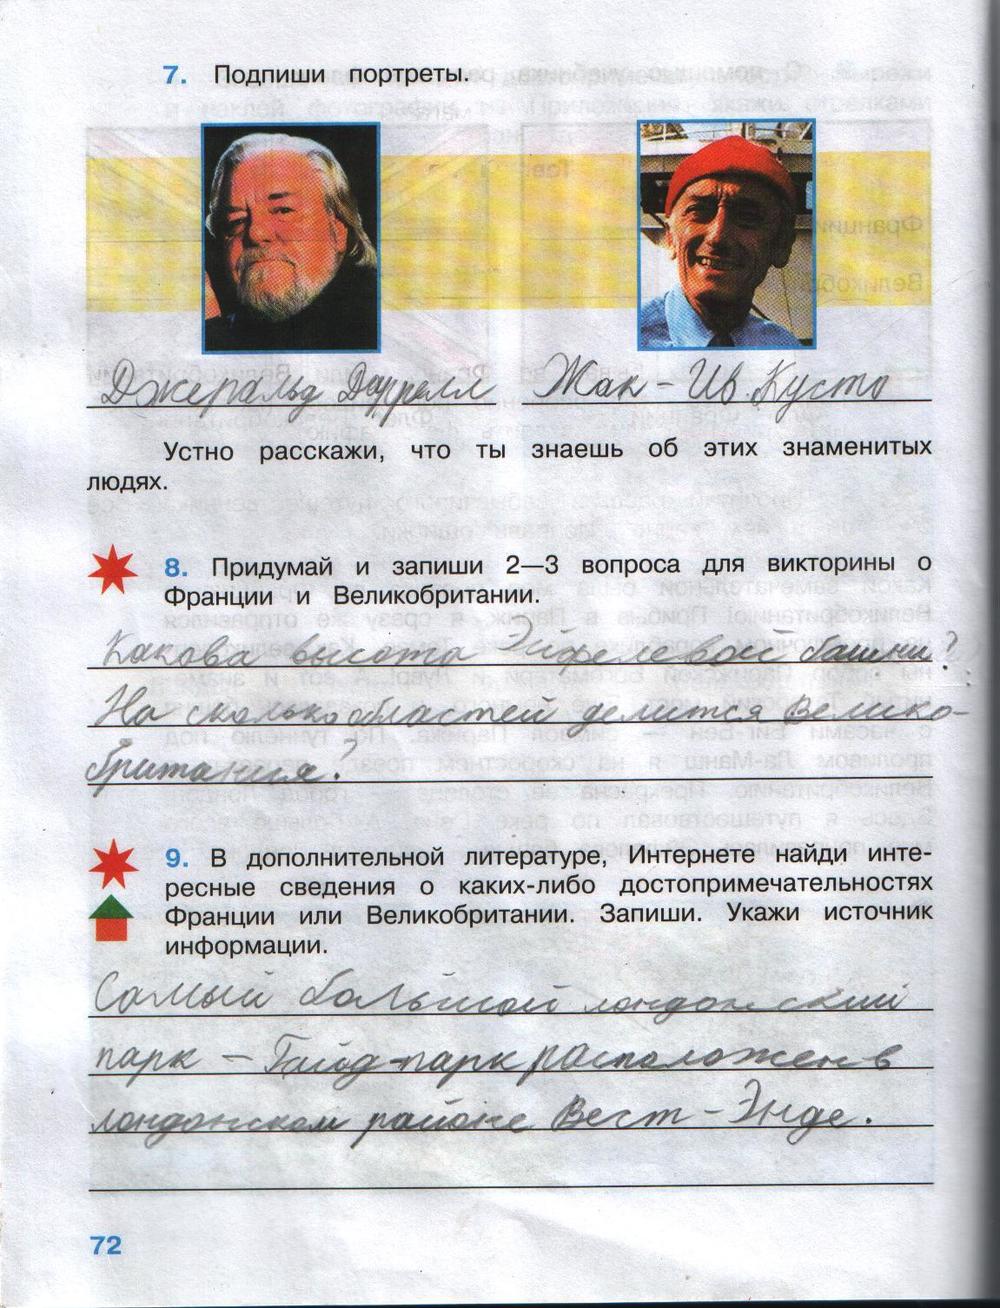 7. Подпиши портреты.
Джеральд Даррелл Жак-Ив Кусто
Устно расскажи, что ты знаешь об этих знаменитых
людях.
8. Придумай и запиши 2—3 вопроса для викторины о
Франции и Великобритании.
Какова высота Эйфелевой башни?
На сколько областей делится Велико-
британия?
9. В дополнительной литературе, Интернете найди инте-
ресные сведения о каких-либо достопримечательностях
Франции или Великобритании. Запиши. Укажи источник
информации.
Самый большой лондонский
парк – Гайд-парк расположен в
лондонском районе Вест-Энде.
72